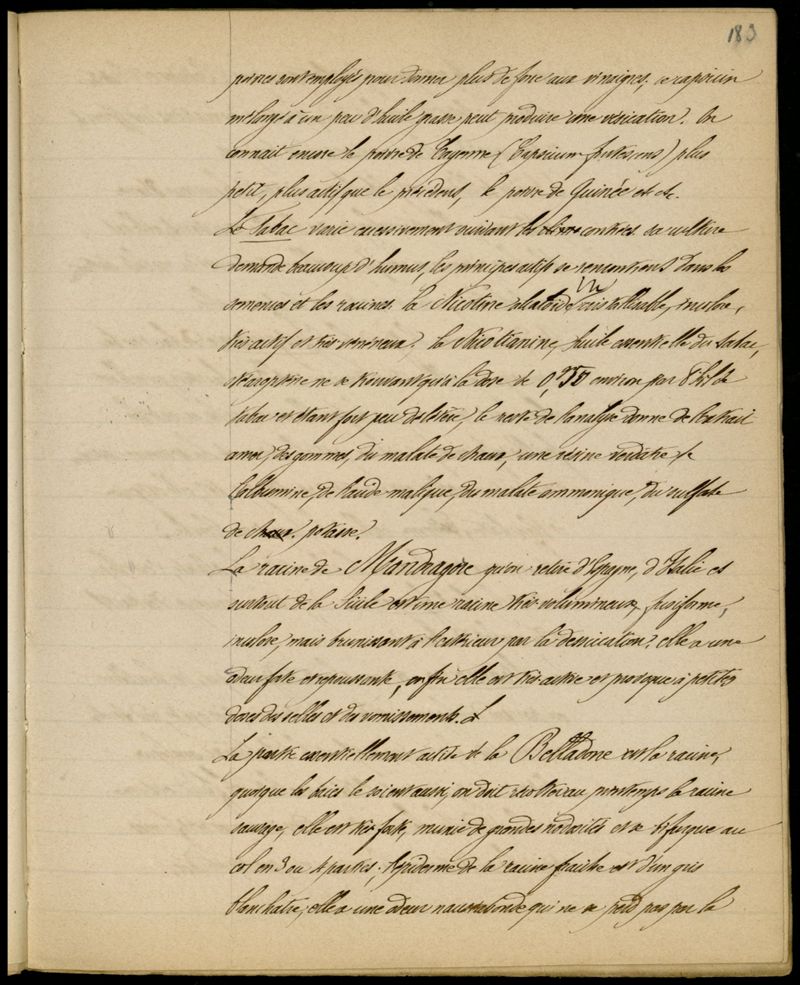 183
poivres sont employés pour donner plus de force aux vinaigres, ce capsicin
mélangé à un peu d'huile grasse peut produire une vésication. On
connait encore le poivre de Cayenne (Capsicum frutescens) plus
petit, plus actif que le précédent, le poivre de Guinée et etc.
Le Tabac varie excessivement suivant les contrées. sa culture
demande beaucoup d'humus, les principes actifs se rencontrent dans les
semences et les racines. la Nicotine alcaloïde cristallisable, incolore,
très actif et très vénéneux. la Nicotianine, huile essentielle du tabac,
ne se trouvant qu'à la dose de 0,50 environ par 8 kil de
tabac et étant fort peu délétère, le reste de l'analyse donne de l'extrait
amer, des gommes, du malate de chaux, une résine verdâtre de
l'albumine, de l'acide malique, du malate ammonique, du sulfate
de chaux. potasse.
La racine de Mandragore qu'on retire d'Espagne, d'Italie et
surtout de la Sicile est une racine très volumineuse, fusiforme,
incolore, mais brunissant à l'extérieur par la dessication. elle a une
odeur fade et repoussante, enfin elle est très active et provoque à petites
doses des selles et des vomissements.
La partie essentiellement active de la Belladone est la racine,
quoique les baies le soient aussi, on doit récolter au printemps la racine
sauvage, elle est très forte, munie de grandes nodosités et se bifurque au
col en 3 ou 4 parties. l'épiderme de la racine fraîche est d'un gris
blanchatre, elle a une odeur nauséabonde qui ne se perd pas par la